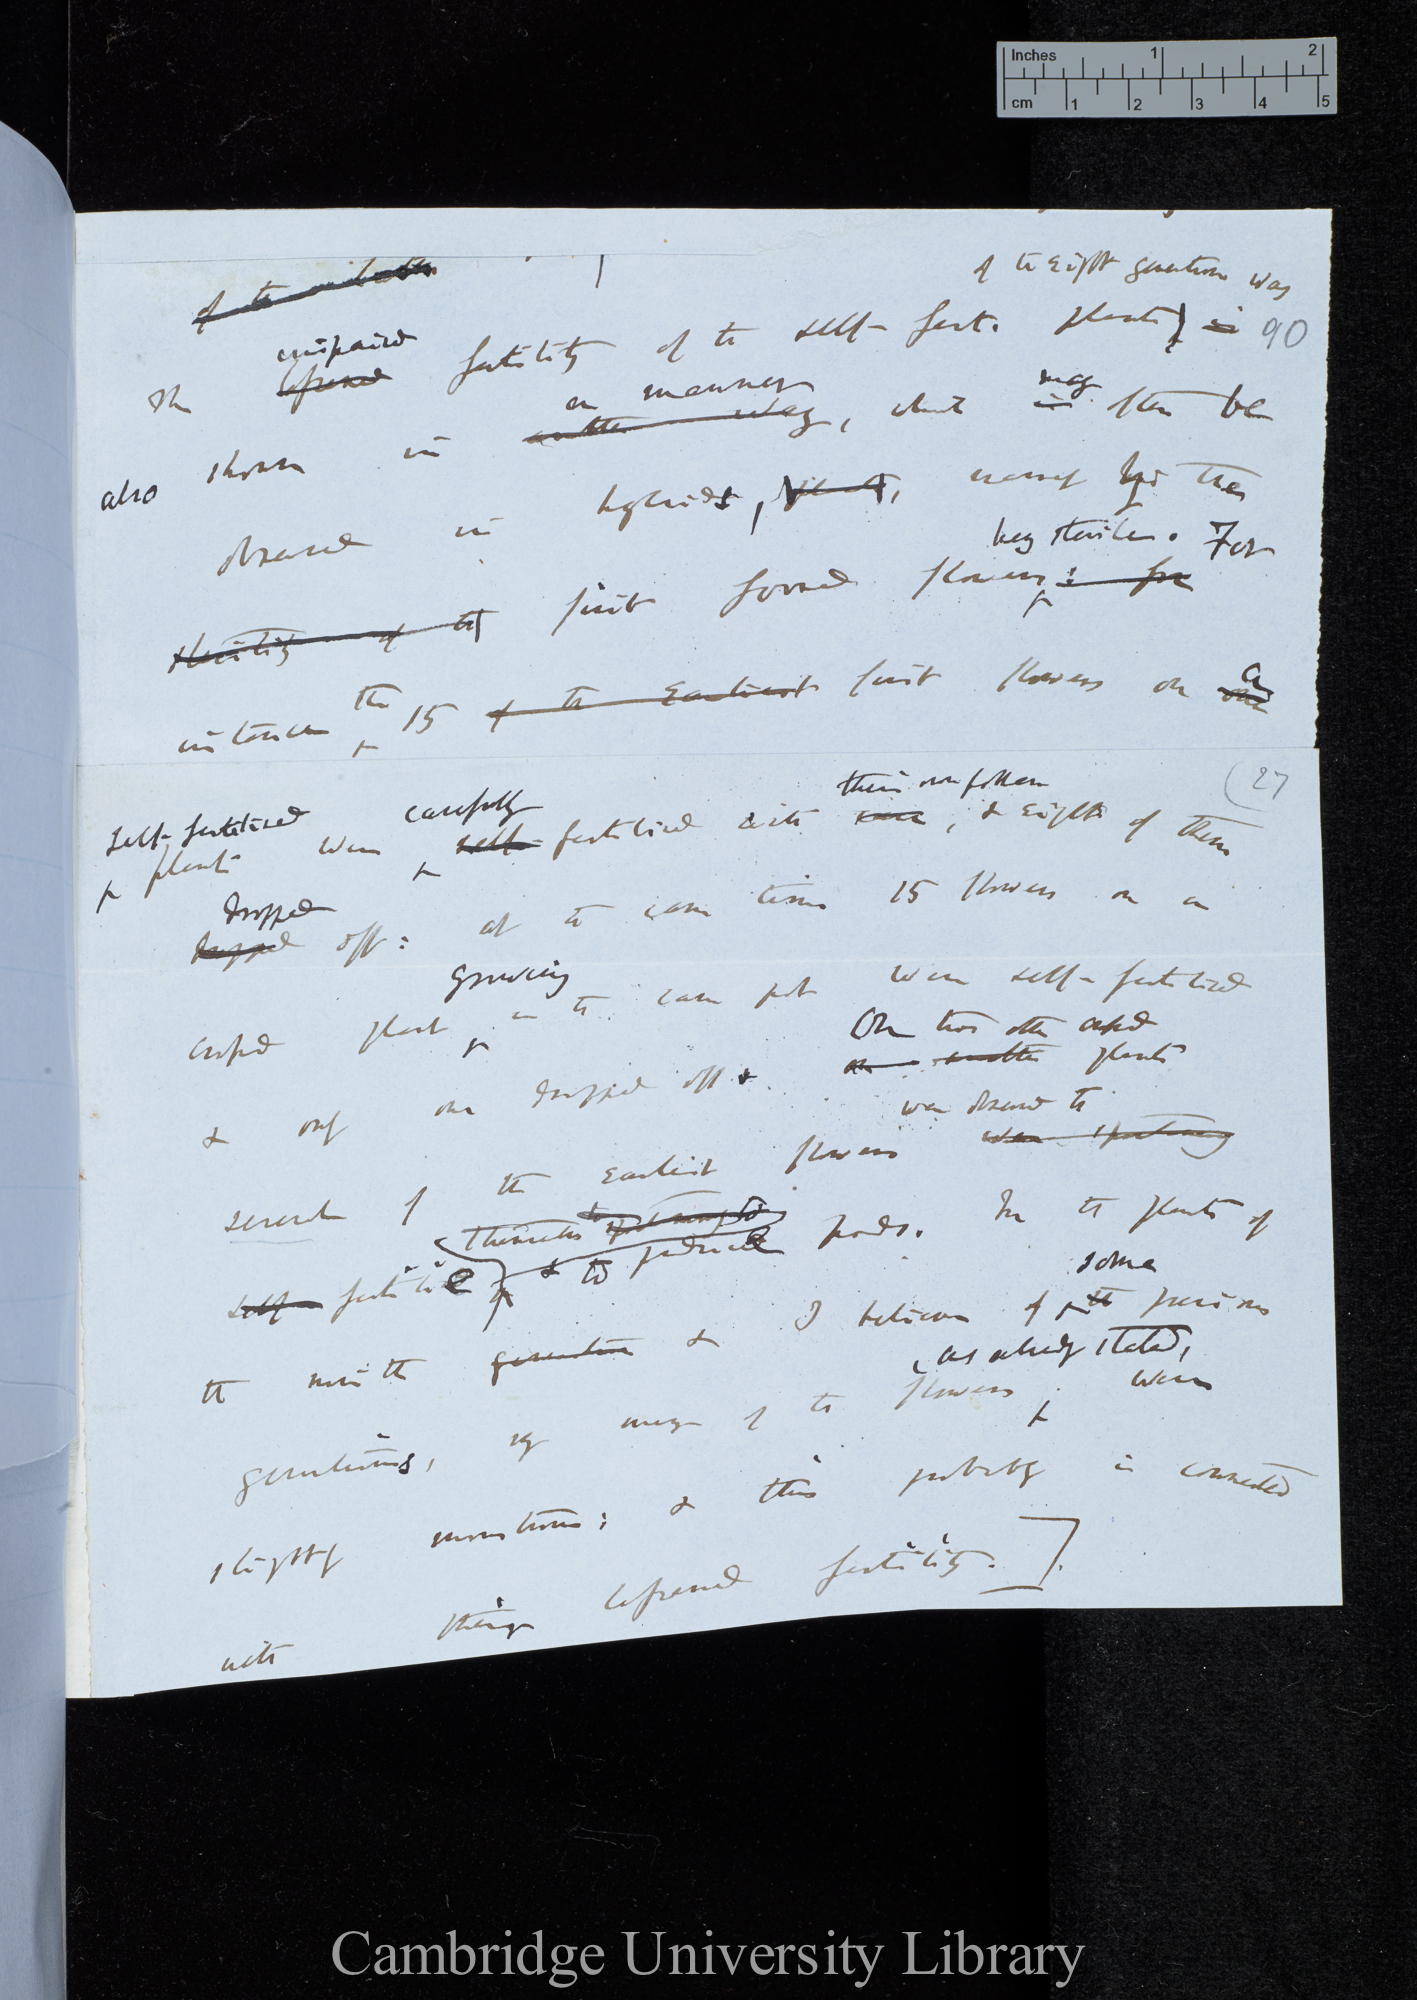 Inches 1 2
cm 1 2 3 4 5
of the
of the eighth generation was
90
The impaired fertility of the self-fert. plants is
also shown in a manner another way, which may is often be
observed in hybrids, plants, namely by their
being sterile. For
sterility of the first formed flowers : for
instance the 15 of the earliest first flowers on a one
27
self-fertilised carefully their own pollen
plant were self-fertilised with same, & eight of them
dropped
dropped off: at the same time 15 flowers on a
crossed plant growing in the same pot were self-fertilised
& only one dropped off. On two other crossed
on another plants
several of the earliest flowers were observed to
were spontaneously
self-fertilise themselves & to produce pods. In the plants of
the ninth generation & I believe of some the previous
generations, very many of the flowers, as already stated, were
slightly monstrous; & this probably is connected
with their lessened fertility.]
Cambridge University Library